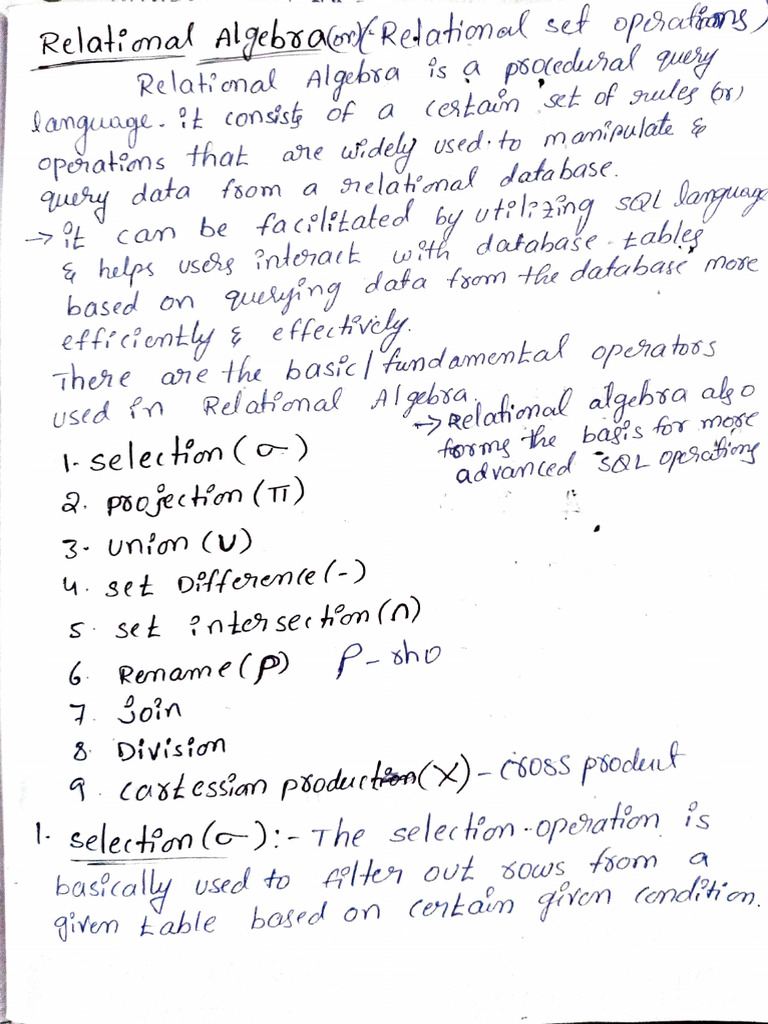 Relational Algebra (or) (Relational set operations)
Relational Algebra is a procedural query
language. it consists of a certain set of rules (or)
operations that are widely used to manipulate &
query data from a relational database.
→ it can be facilitated by utilizing SQL language
& helps users interact with database tables
based on querying data from the database more
efficiently & effectively.
There are the basic/fundamental operators
used in Relational Algebra.
→ Relational algebra also
forms the basis for more
advanced SQL operations
1. selection (σ)
2. projection (π)
3. union (∪)
4. set Difference (-)
5. set intersection (∩)
6. Rename (ρ) ρ - rho
7. Join
8. Division
9. cartession production (X) - cross product
1. selection (σ) :- The selection operation is
basically used to filter out rows from a
given table based on certain given condition.